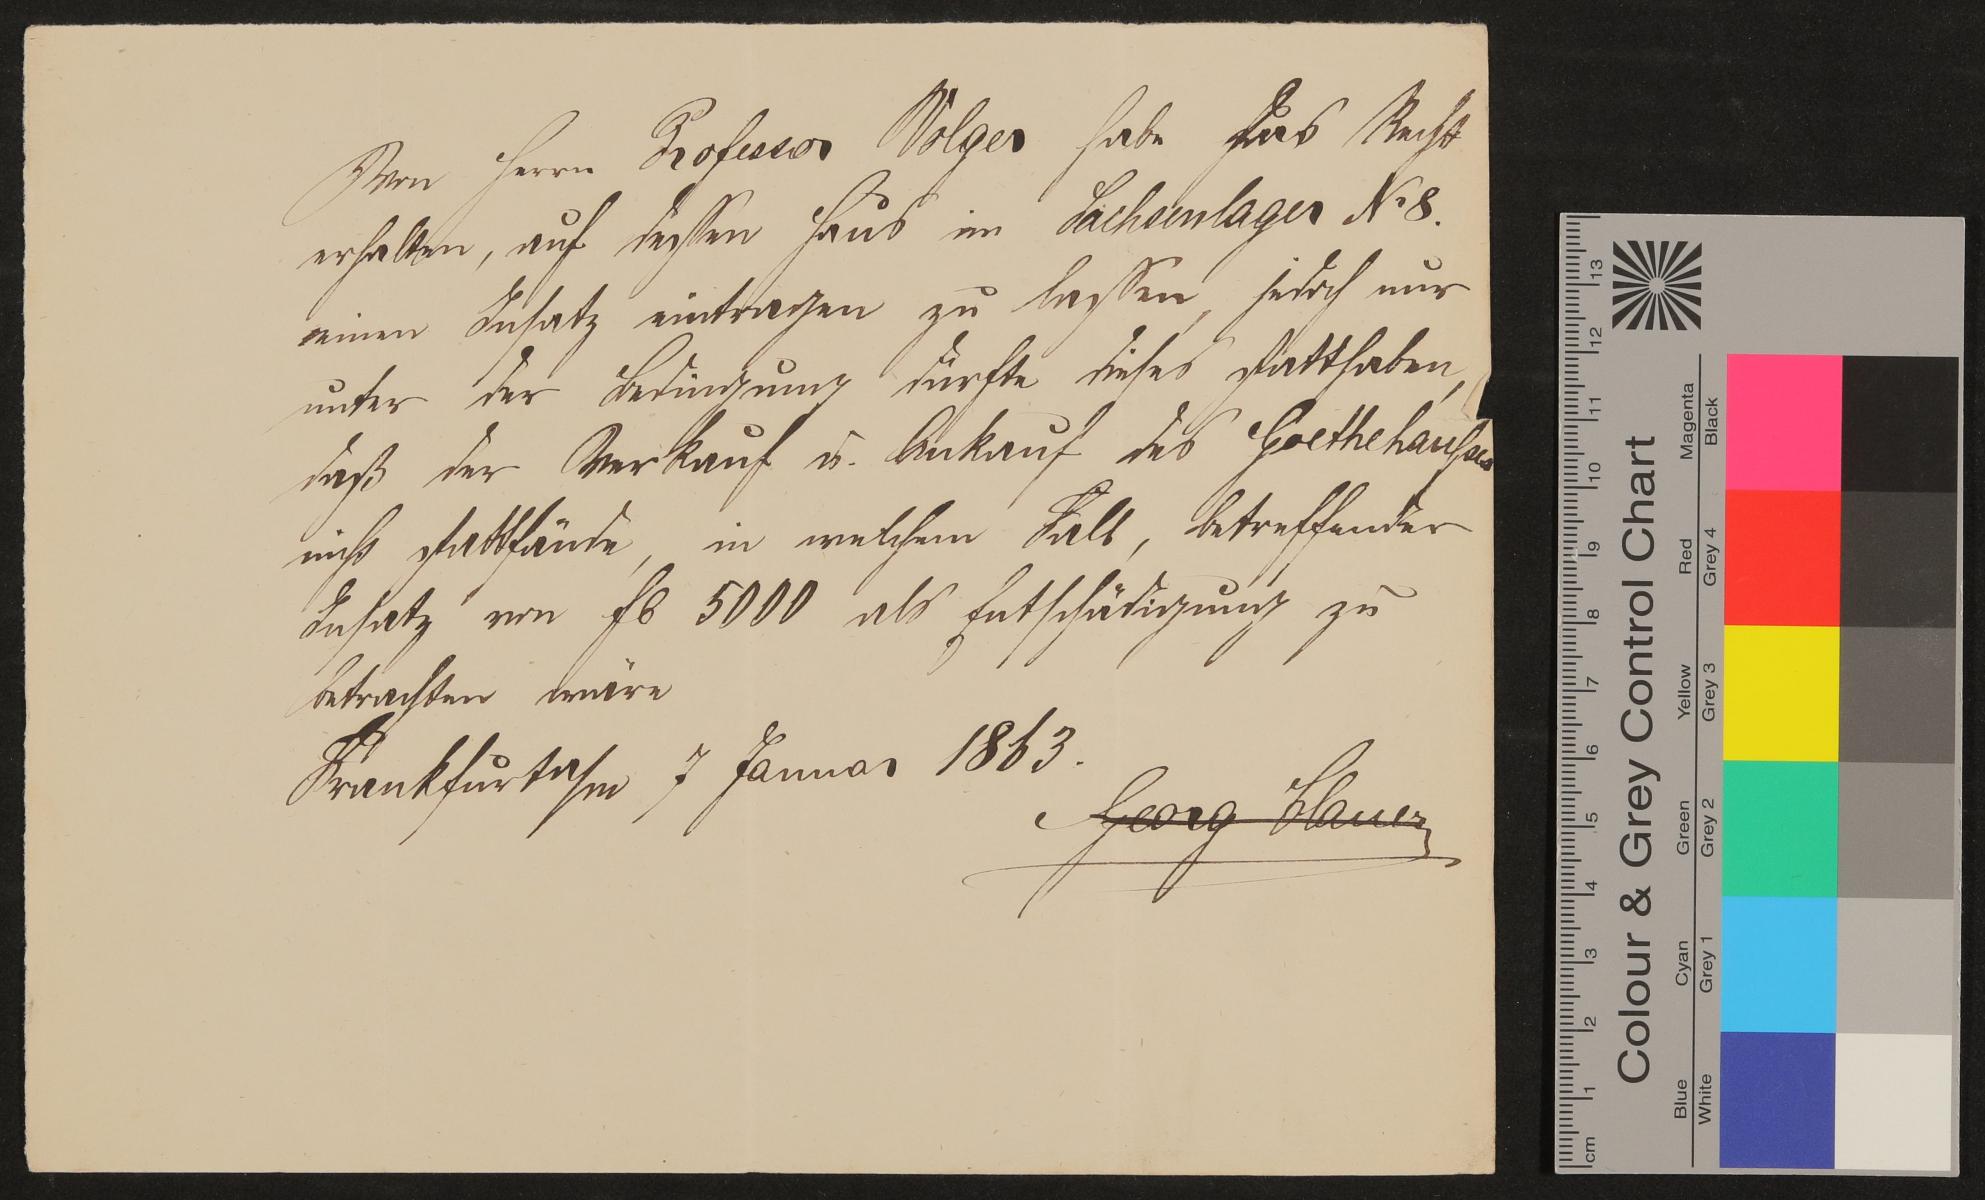 Von Herrn Professor Volger habe das Recht
erhalten, auf dessen Haus im Sachsenlager No 8.
einen Insatz eintragen zu lassen, jedoch nur
unter der Bedingung dürfte dieses statthaben,
daß der Verkauf u. Ankauf des Goethehauses
nicht stattfände, in welchem Fall, betreffender
Insatz von fl 5000 als Entschädigung zu
betrachten wäre
Frankfurt a/m 7 Januar 1863.
Georg
13
12
11
10
9
8
7
6
5
4
3
2
1
cm
Colour & Grey Control Chart
Magenta
Black
Red
Grey 4
Yellow
Grey 3
Green
Grey 2
Cyan
Grey 1
Blue
White